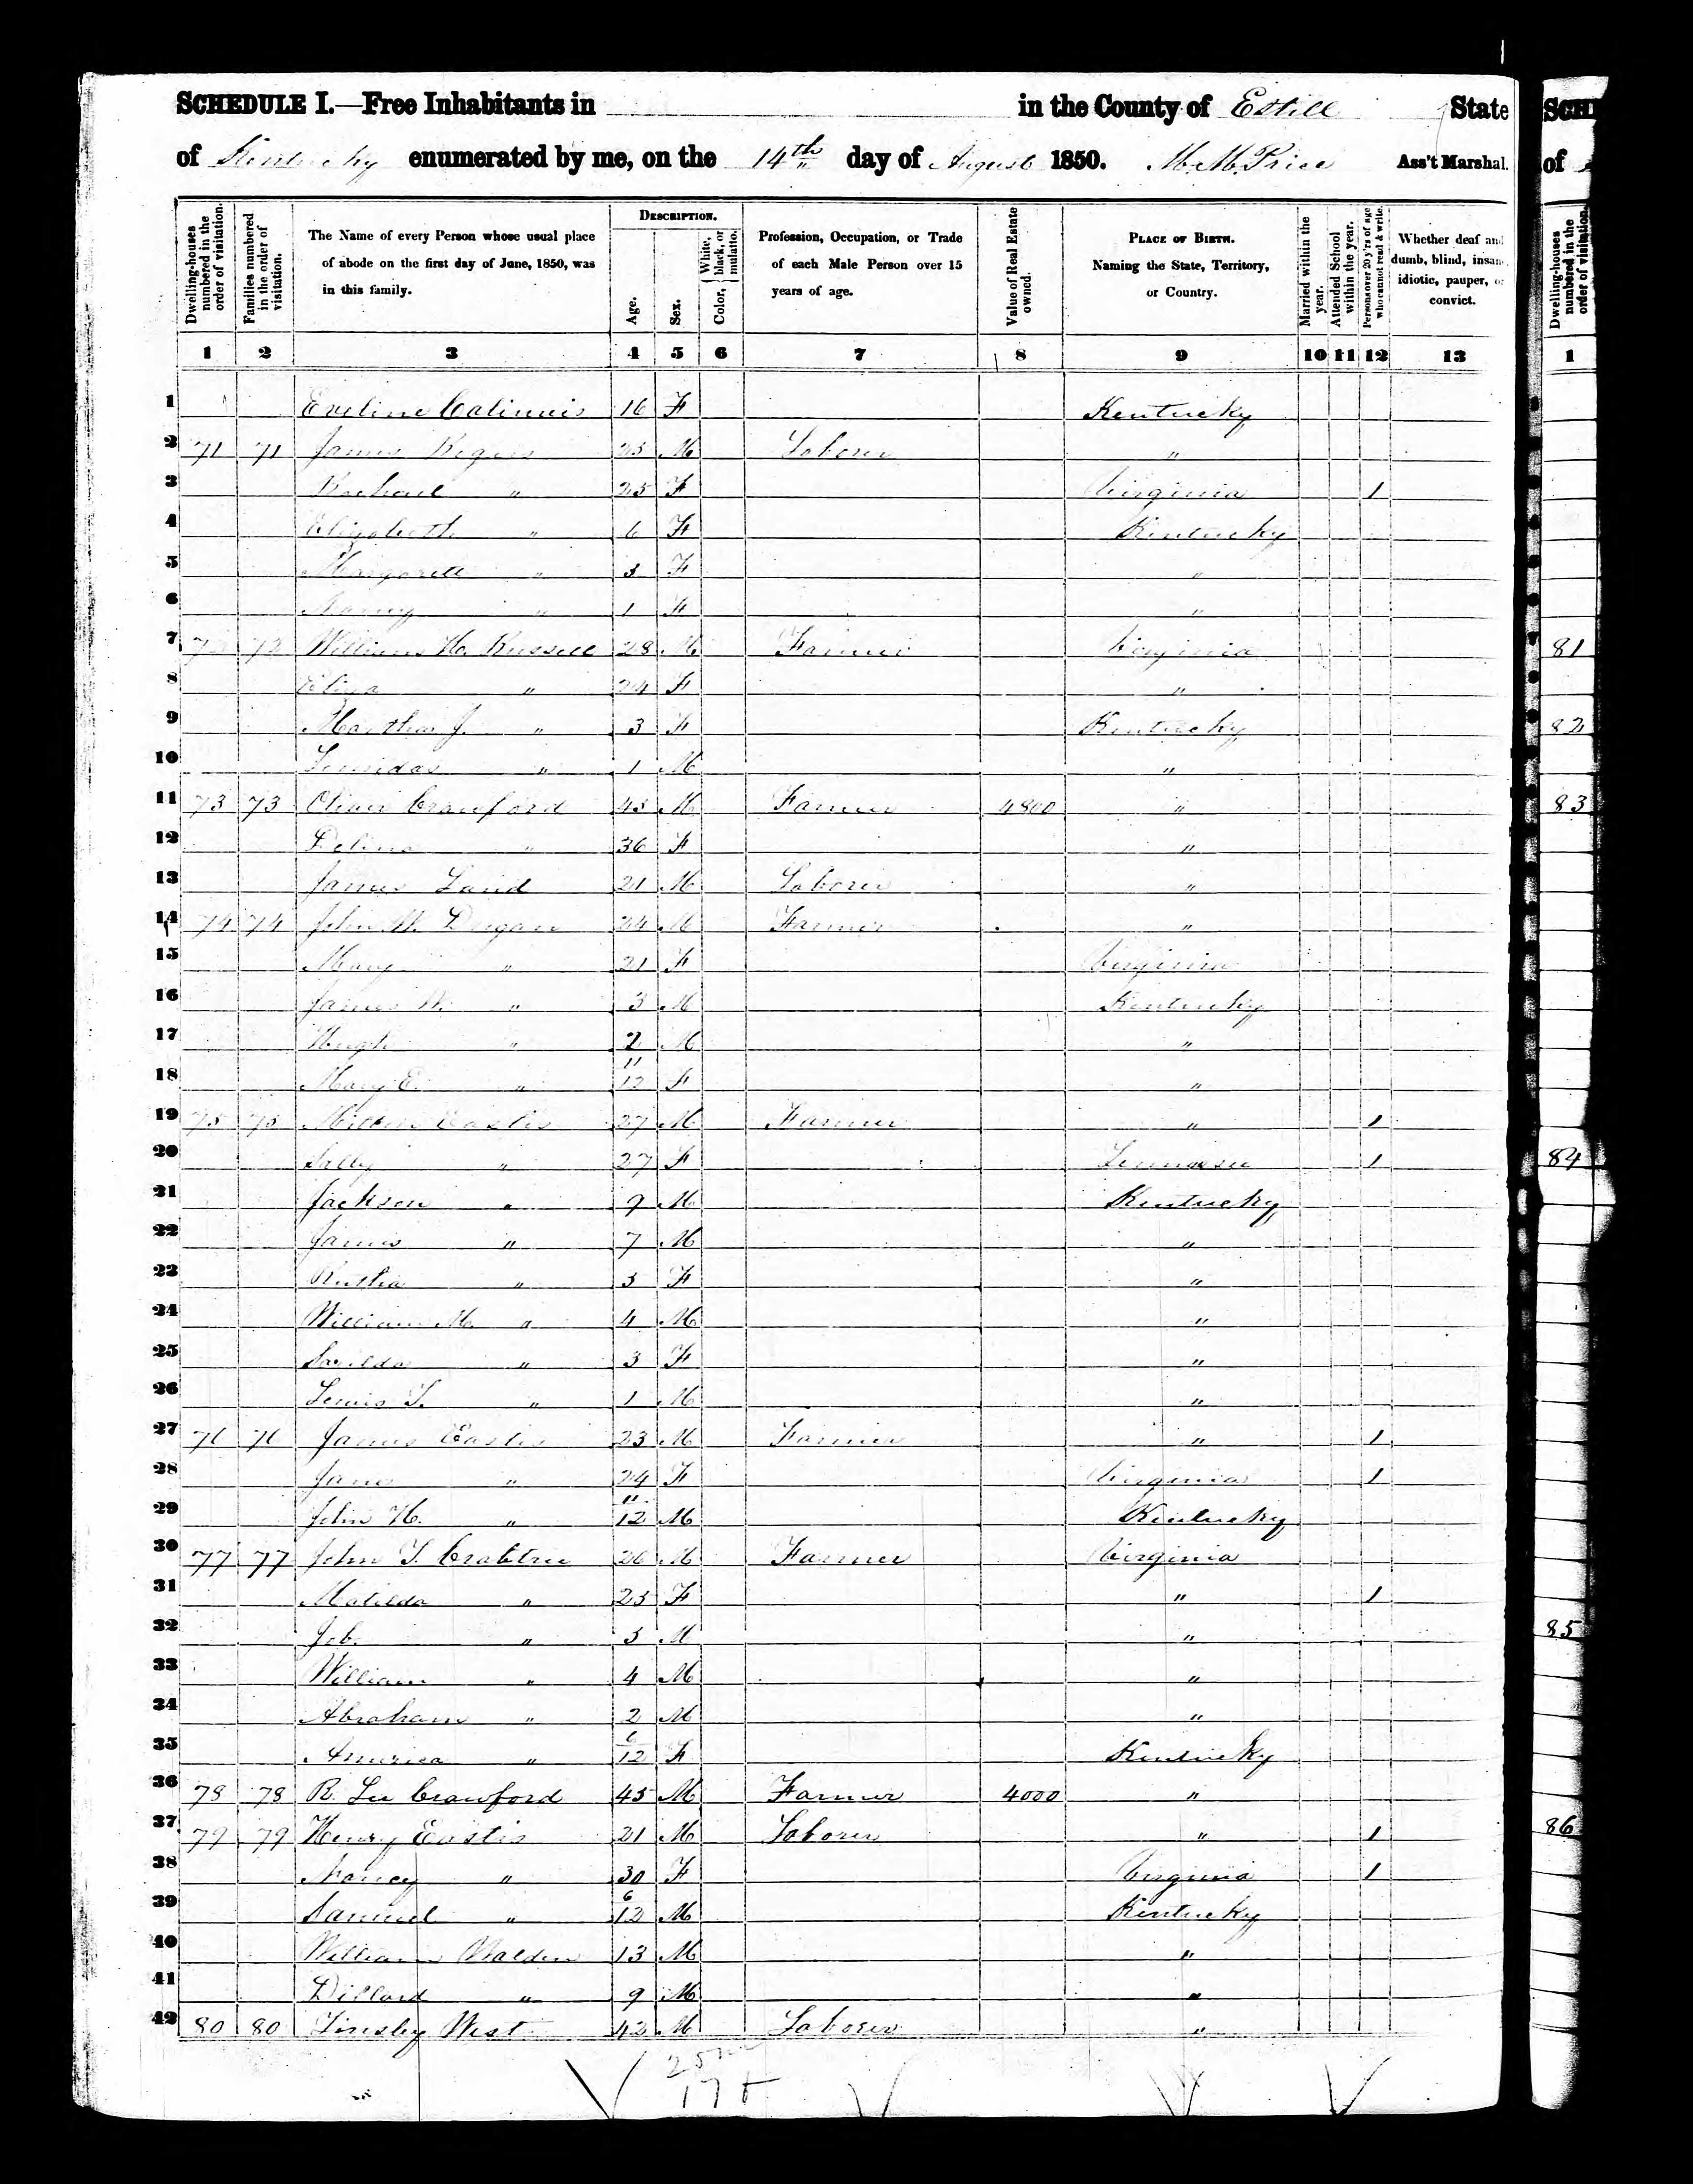 SCHEDULE I.—Free Inhabitants in in the County of Estill State
of Kentucky enumerated by me, on the 14th day of August 1850. M. M. Price Ass't Marshal.
Dwelling-houses numbered in the order of visitation.
Families numbered in the order of visitation.
The Name of every Person whose usual place of abode on the first day of June, 1850, was in this family.
DESCRIPTION.
Age.
Sex.
Color, White, black, or mulatto.
Profession, Occupation, or Trade of each Male Person over 15 years of age.
Value of Real Estate owned.
PLACE OF BIRTH. Naming the State, Territory, or Country.
Married within the year.
Attended School within the year.
Persons over 20 y'rs of age who cannot read & write.
Whether deaf and dumb, blind, insane, idiotic, pauper, or convict.
1 2 3 4 5 6 7 8 9 10 11 12 13
1 Eveline 16 F Kentucky
2 71 71 James Rogers 25 M Laborer "
3 Rachael " 25 F Virginia 1
4 Elizabeth " 6 F Kentucky
5 Margarett " 3 F "
6 Nancy " 1 F "
7 72 72 William H. Russell 28 M Farmer Virginia
8 Eliza " 24 F "
9 Martha J. " 3 F Kentucky
10 Leonidas " 1 M "
11 73 73 Oliver Crawford 45 M Farmer 4800 "
12 Delina " 36 F "
13 James Land 21 M Laborer "
14 74 74 John W. Dugan 24 M Farmer "
15 Mary " 21 F Virginia
16 James W. " 3 M Kentucky
17 Hugh " 2 M "
18 Mary E. " 11/12 F "
19 75 75 Eastis 27 M Farmer " 1
20 Sally " 27 F Tennessee 1
21 Jackson " 9 M Kentucky
22 James " 7 M "
23 " 5 F "
24 William M. " 4 M "
25 " 3 F "
26 Lewis T. " 1 M "
27 76 76 James Eastis 23 M Farmer " 1
28 Jane " 24 F Virginia 1
29 John H. " 11/12 M Kentucky
30 77 77 John T. Crabtree 26 M Farmer Virginia
31 Matilda " 25 F " 1
32 Job. " 5 M "
33 William " 4 M "
34 Abraham " 2 M "
35 America " 6/12 F Kentucky
36 78 78 R. Lee Crawford 45 M Farmer 4000 "
37 79 79 Henry Eastis 21 M Laborer " 1
38 Nancy " 30 F Virginia 1
39 Samuel " 6/12 M Kentucky
40 William Walden 13 M "
41 Dillard " 9 M "
42 80 80 Tinsley West 42 M Laborer "
25 m
17 f
SCH
of
Dwelling-houses numbered in the order of visitation.
1
81
82
83
84
85
86